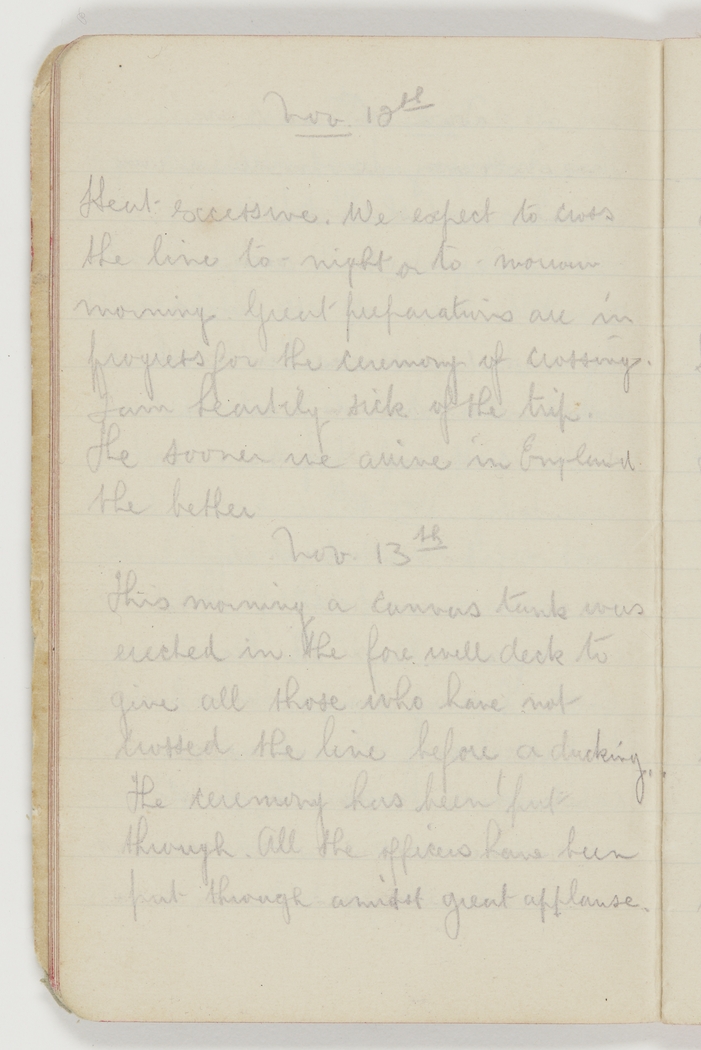 Nov. 12th
Heat excessive. We expect to cross
the line to-night or to-morrow
morning. Great preparations are in
progress for the ceremony of crossing.
I am heartily sick of the trip.
The sooner we arrive in England
the better
Nov. 13th
This morning a canvas tank was
erected in the fore well deck to
give all those who have not
crossed the line before a ducking.
The ceremony has been put
through. All the officers have been
put through amidst great applause.